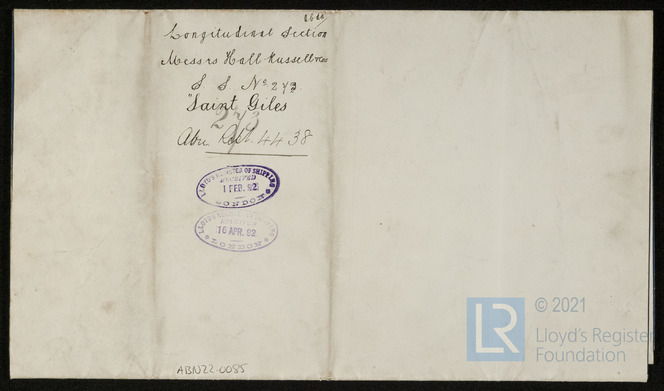 Longitudinal Section
Messrs Hall Russell & Co's
S S No 273
"Saint Giles
273
Abn Rpt. 4438
LLOYD'S REGISTER OF SHIPPING
RECEIVED
1 FEB. 92
LONDON
LLOYD'S REGISTER OF SHIPPING
RECEIVED
16 APR. 92
LONDON
ABN22-0085
LR
© 2021
Lloyd's Register
Foundation